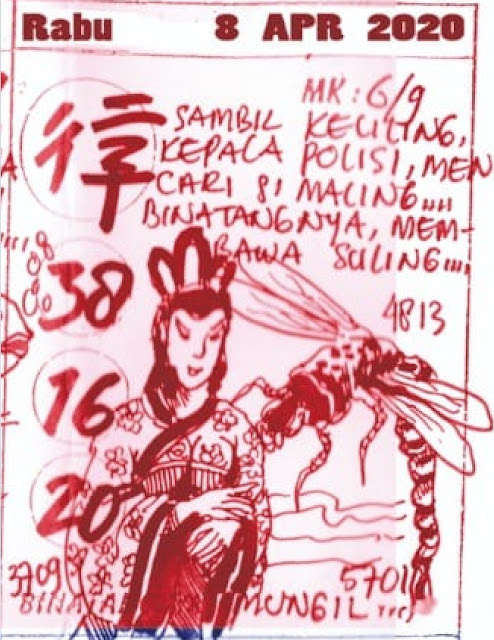 Rabu 8 APR 2020
MK : 6/9
SAMBIL KELILING,
KEPALA POLISI, MEN
CARI SI MALING....
BINATANGNYA, MEM-
BAWA SULING....
38
4813
16
20
3709
5701
MUNGIL....